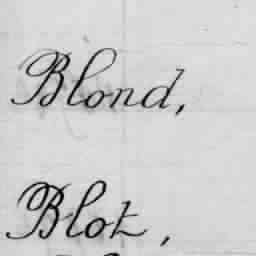 Blond,
Blot,